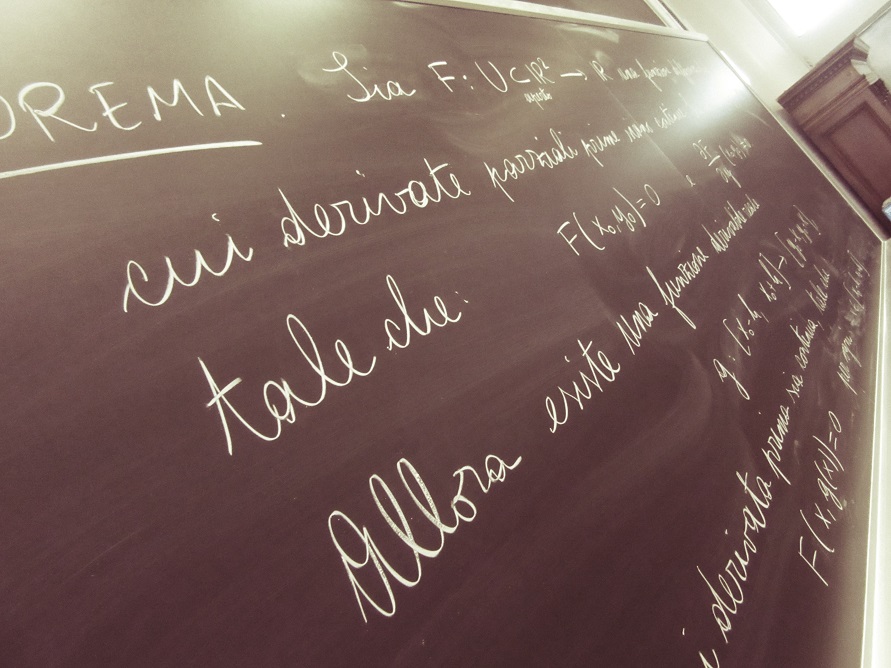 OREMA. Sia F: U ⊂ ℝ² → ℝ una funzione
aperto
cui derivate parziali prime siano continue
tale che: F(x₀, y₀) = 0 e
Allora esiste una funzione derivabile
g: (x₀-h, x₀+h) →
derivata prima sia continua, tale che
F(x, g(x)) = 0 per ogni